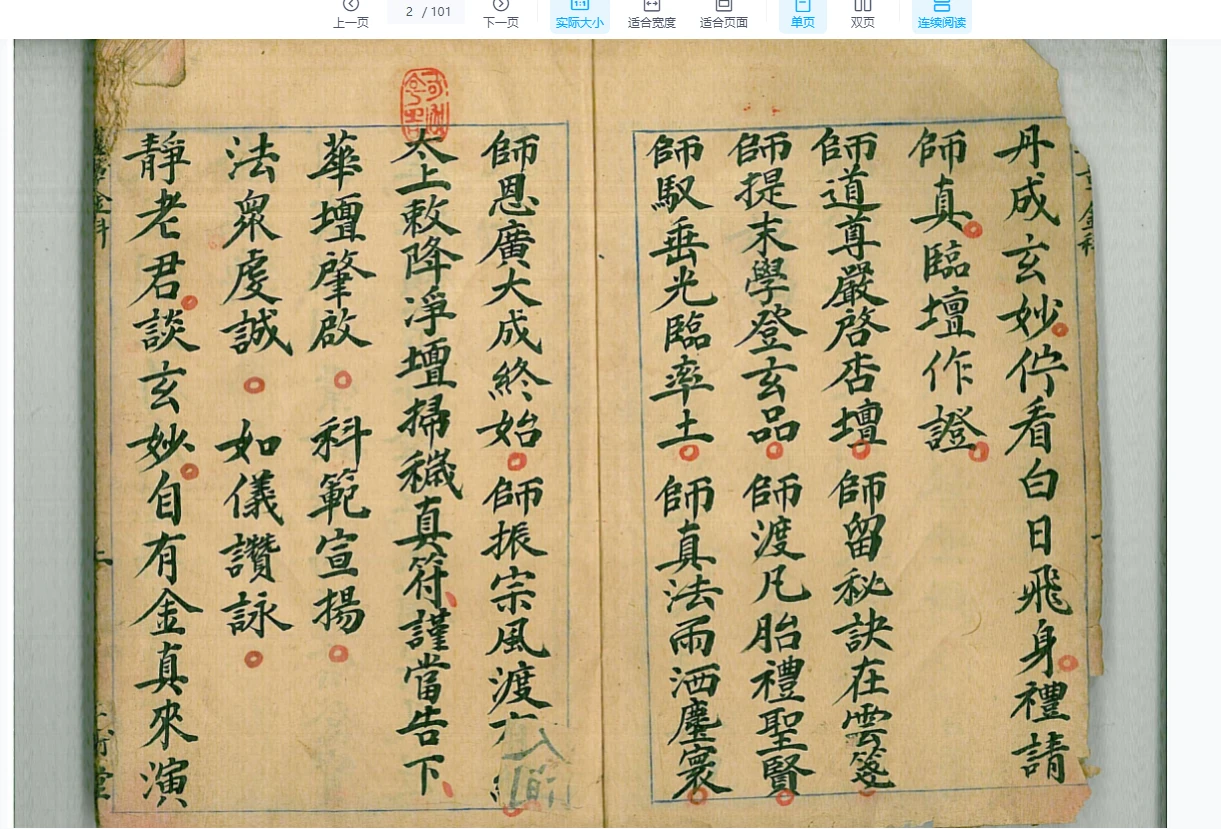 上一页
2 / 101
下一页
实际大小
适合宽度
适合页面
单页
双页
连续阅读
丹成玄妙佇看白日飛身禮請
師真臨壇作證
師道尊嚴啓杏壇師留秘訣在雲篆
師提末學登玄品師渡凡胎禮聖賢
師馭垂光臨率土師真法雨洒塵寰
師恩廣大成終始師振宗風渡
太上敕降淨壇掃穢真符謹當告下
華壇肇啟科範宣揚
法衆虔誠如儀讚詠
靜老君談玄妙自有金真來演